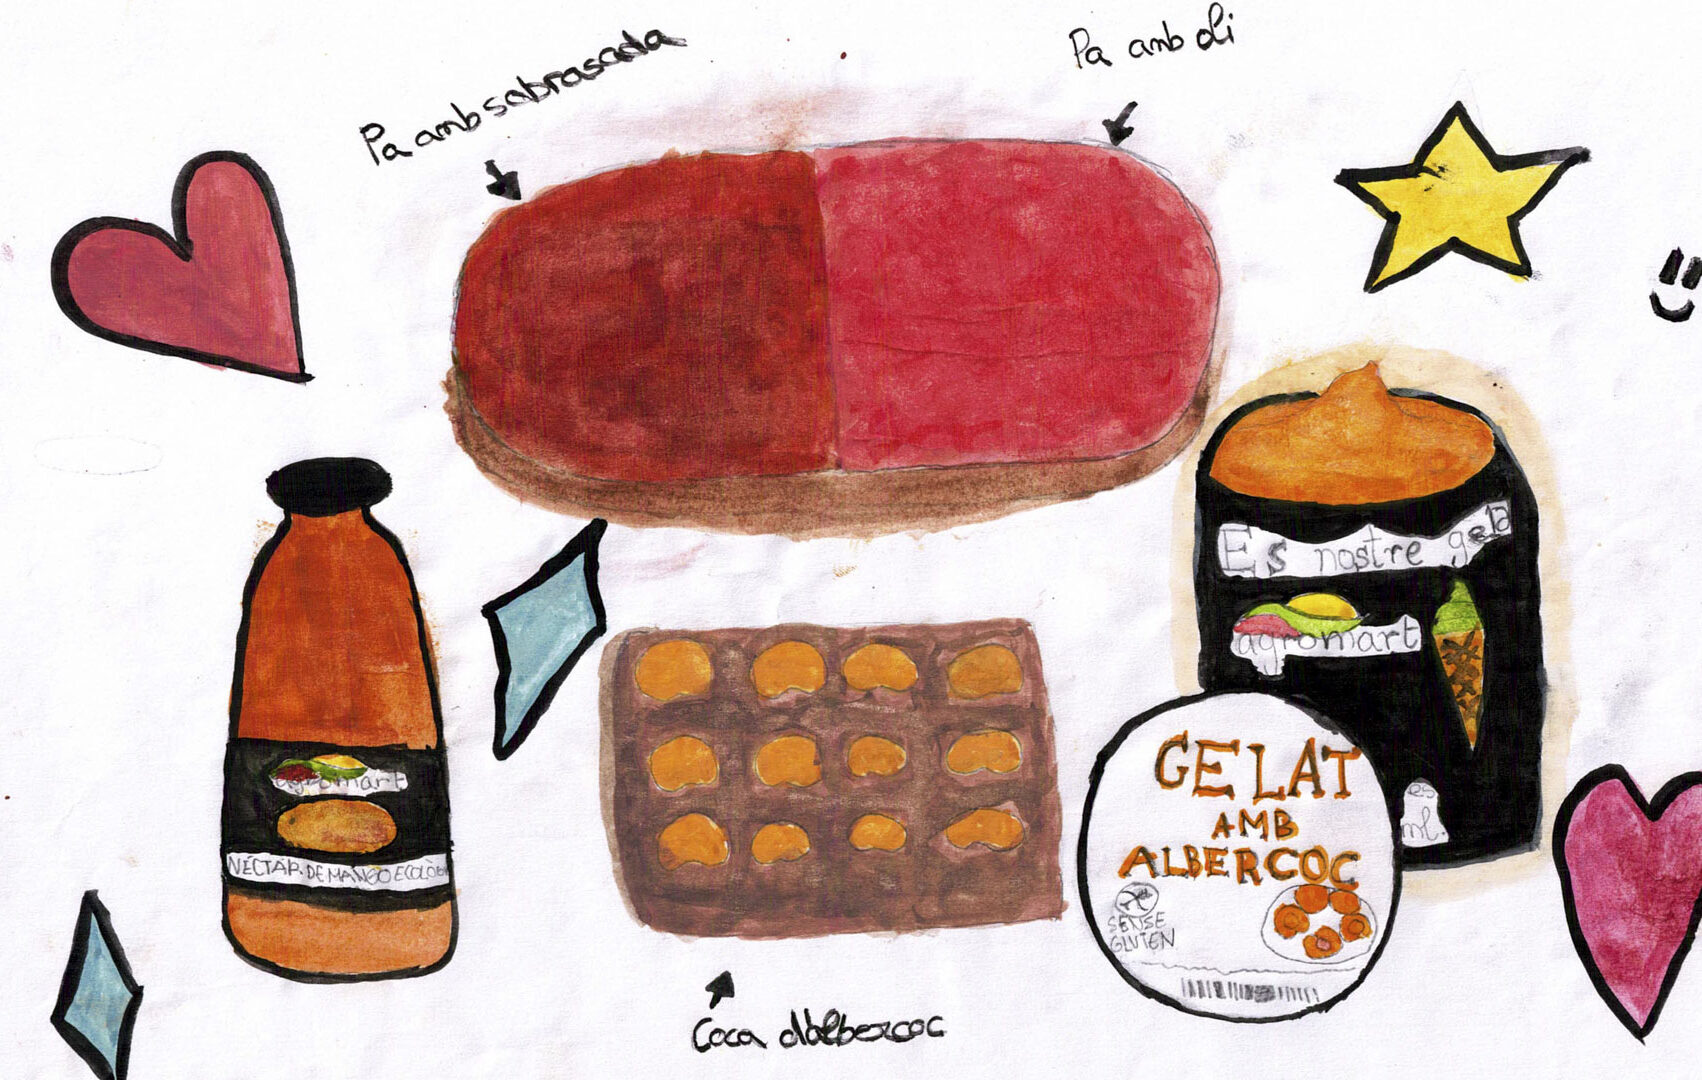 Pa amb sobrasada
Pa amb oli
Es nostre gela
agromart
agromart
NÉCTAR DE MANGO ECOLÒGI
GELAT
AMB
ALBERCOC
SENSE
GLUTEN
es
ml.
Coca d'albercoc